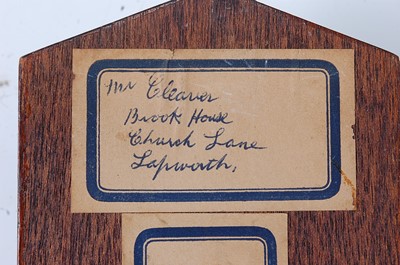 Mr Cleaver
Brook House
Church Lane
Lapworth,